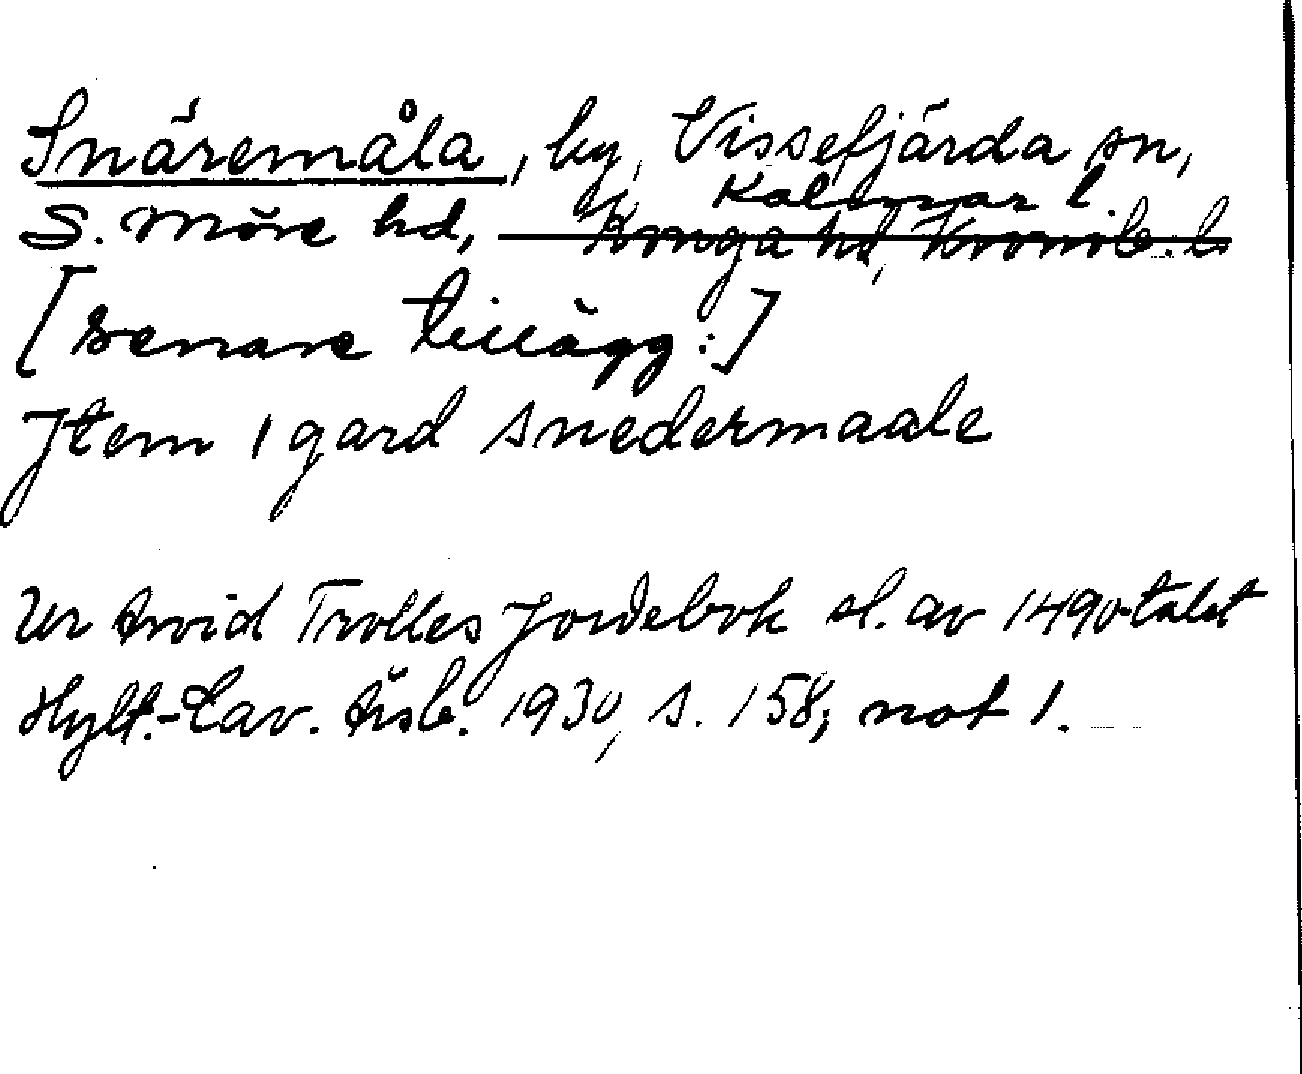 Snäremåla, by, Vissefjärda sn,
Kalmar l.
S. Möre hd, Konga hd, Kronob. l.
[senare tillägg:]
Jtem 1 gard snedermaale
Ur Arvid Trolles Jordebok sl. av 1490-talet
Hylt.-Cav. Årsb. 1930, s. 158, not 1.